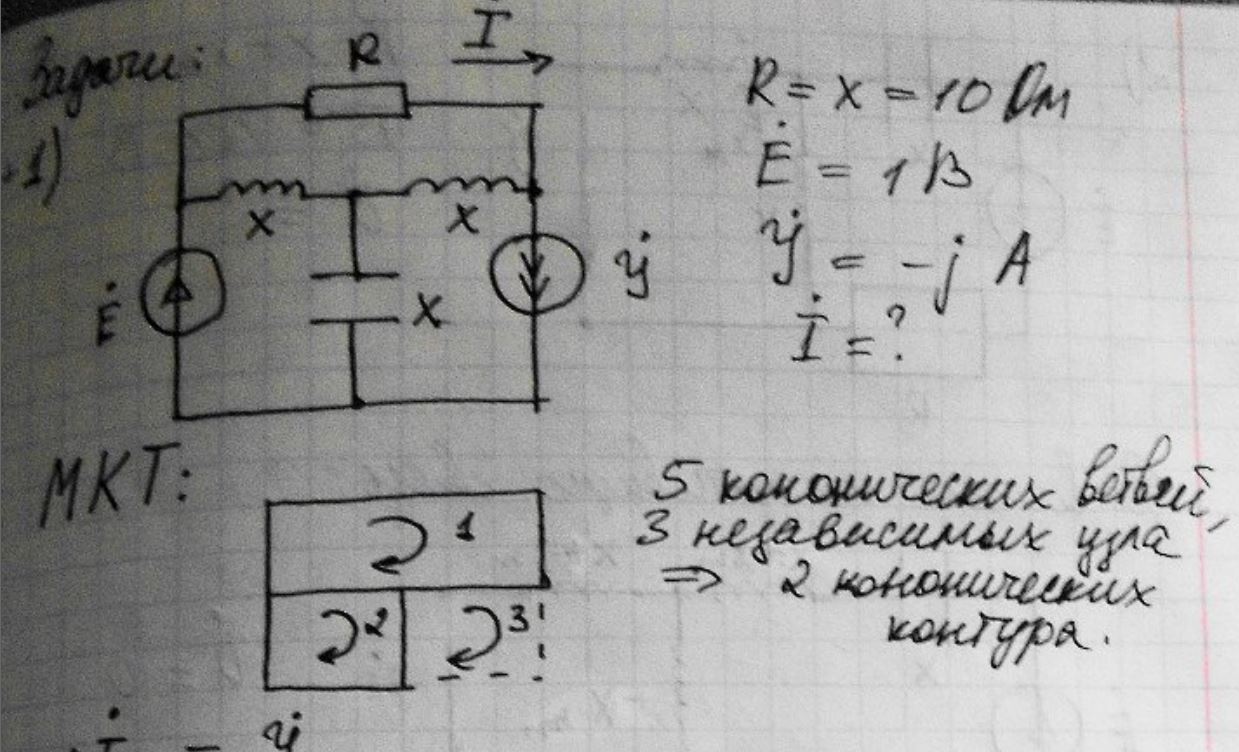 Задачи:
1)
R
İ
X
X
X
Ė
J̇
R = X = 10 Ом
Ė = 1 В
J̇ = -j А
İ = ?
МКТ:
1
2
3
5 кононических ветвей,
3 независимых узла
=> 2 кононических
контура.
İ = J̇